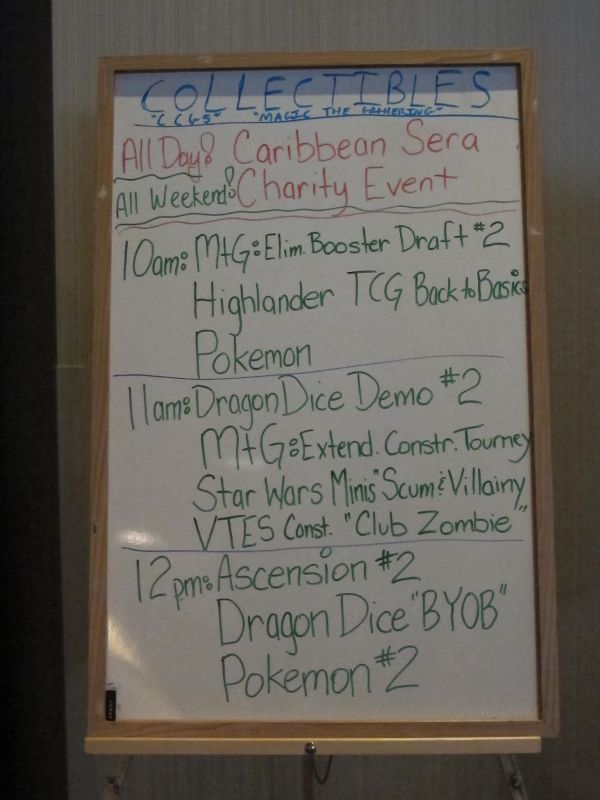 COLLECTIBLES
"CCGS" "MAGIC THE GATHERING"
All Day: Caribbean Sera
All Weekend: Charity Event
10am: MtG: Elim. Booster Draft #2
Highlander TCG Back to Basics
Pokemon
11am: Dragon Dice Demo #2
MtG: Extend. Constr. Tourney
Star Wars Minis "Scum & Villainy
VTES Const. "Club Zombie"
12pm: Ascension #2
Dragon Dice "BYOB"
Pokemon #2